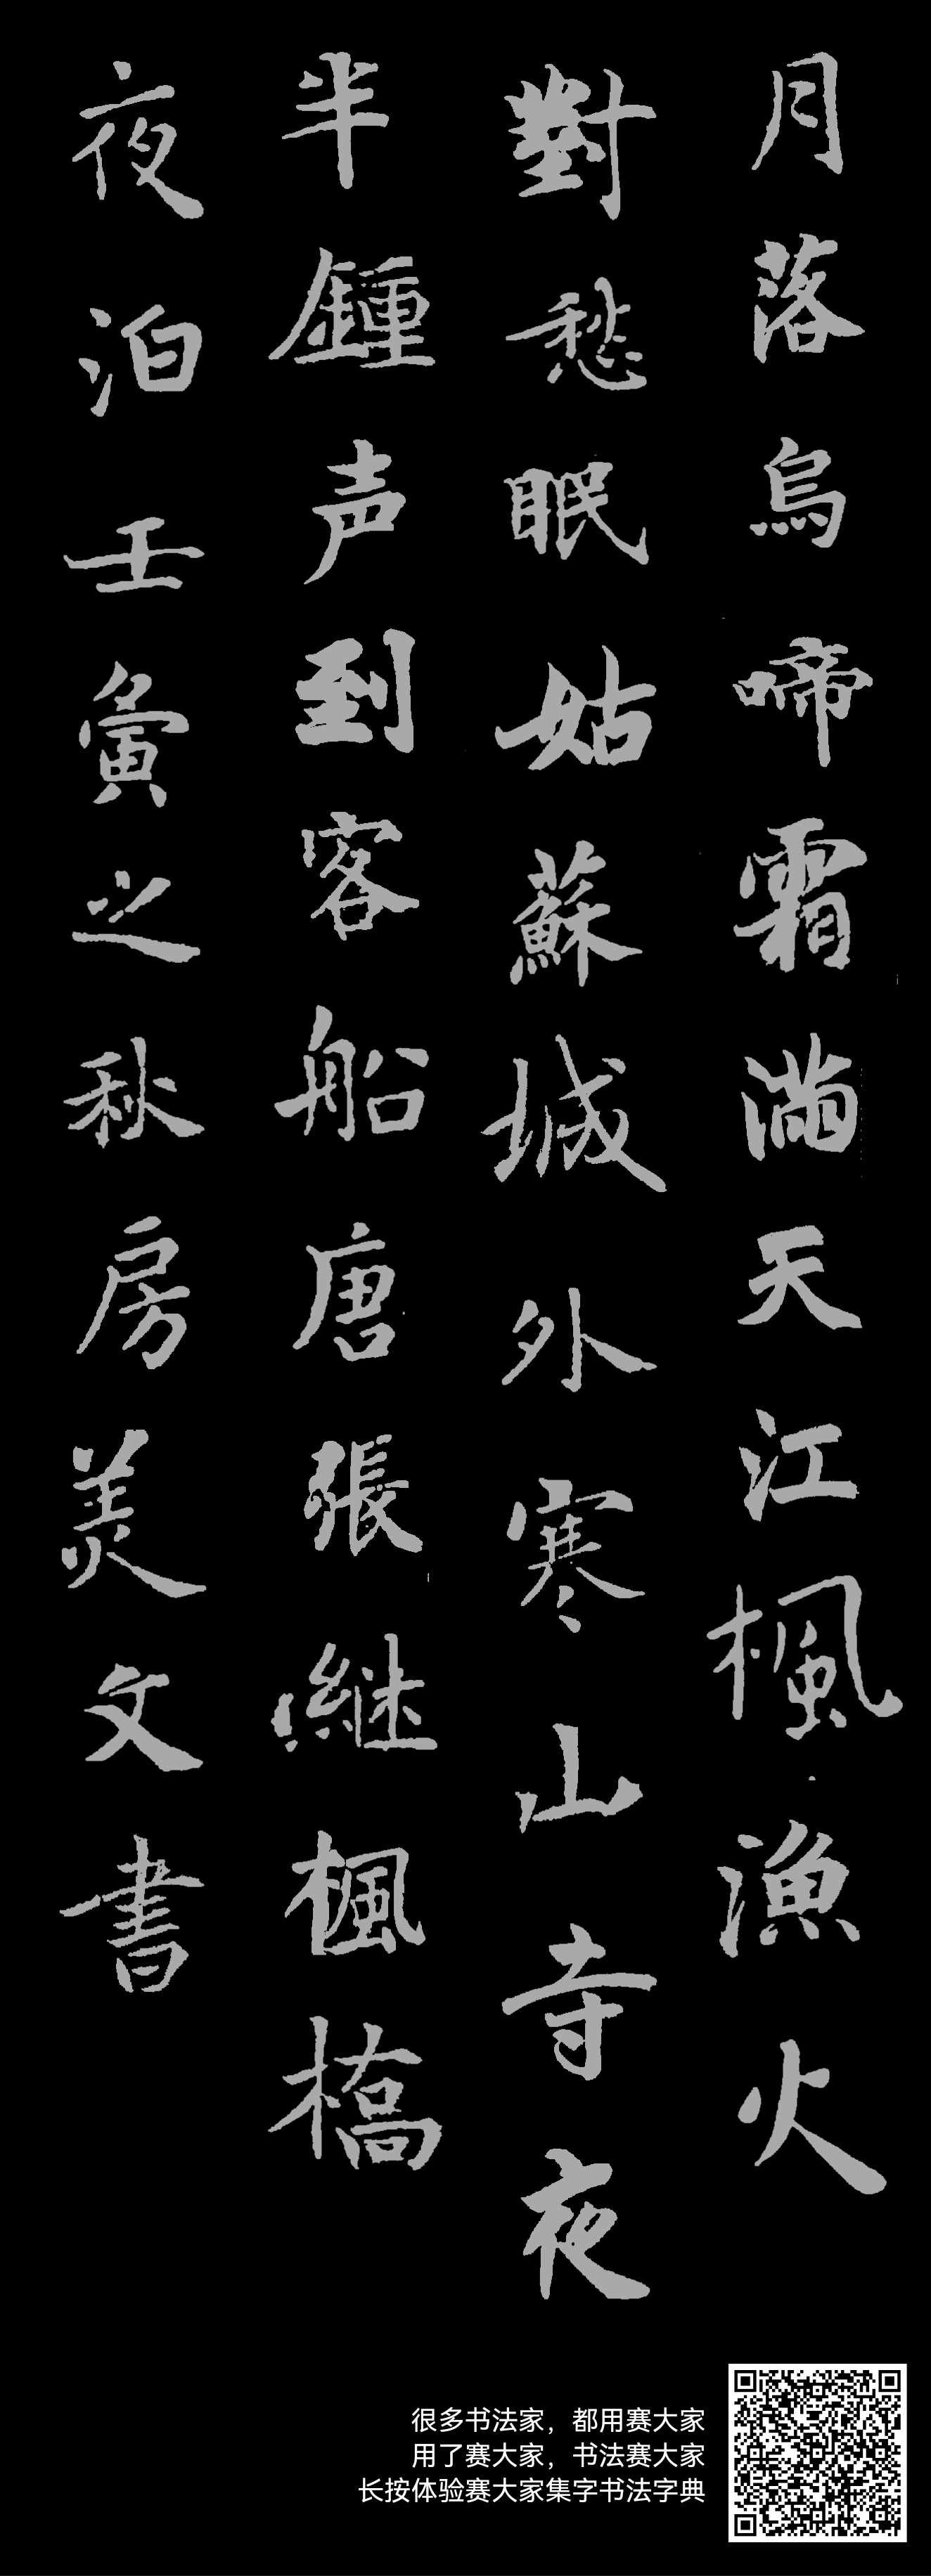 月落烏啼霜滿天江楓漁火
對愁眠姑蘇城外寒山寺夜
半鍾声到客船唐張継楓橋
夜泊壬寅之秋房美文書
很多书法家，都用赛大家
用了赛大家，书法赛大家
长按体验赛大家集字书法字典